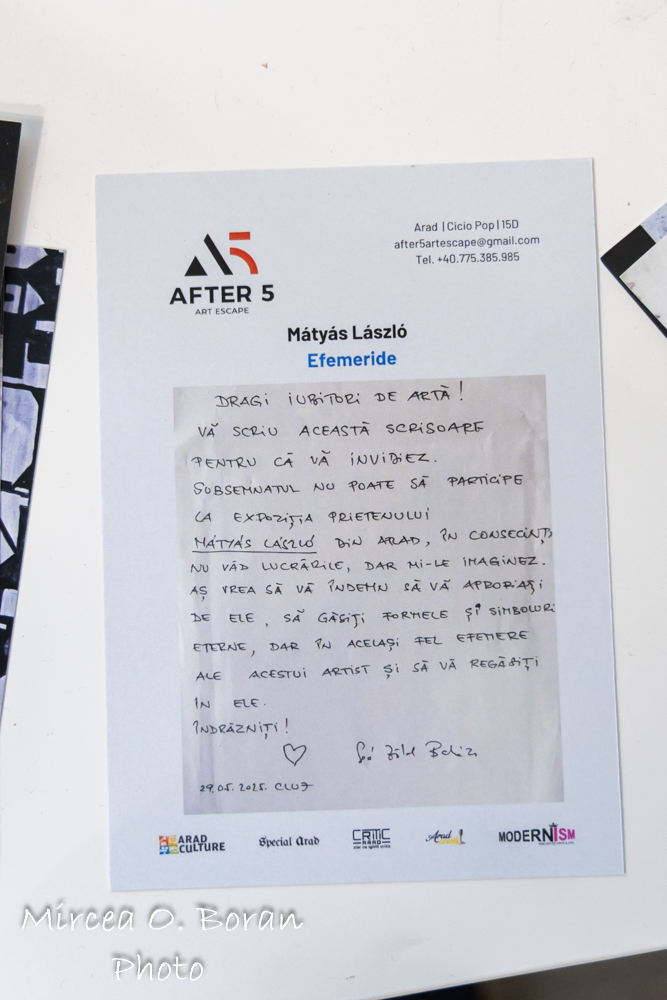 A5
AFTER 5
ART ESCAPE
Arad | Cicio Pop | 15D
after5artescape@gmail.com
Tel. +40.775.385.985
Mátyás László
Efemeride
DRAGI IUBITORI DE ARTĂ!
VĂ SCRIU ACEASTĂ SCRISOARE
PENTRU CĂ VĂ INVIDIEZ.
SUBSEMNATUL NU POATE SĂ PARTICIPE
LA EXPOZIȚIA PRIETENULUI
MÁTYÁS LÁSZLÓ DIN ARAD, ÎN CONSECINȚĂ
NU VĂD LUCRĂRILE, DAR MI-LE IMAGINEZ.
AȘ VREA SĂ VĂ ÎNDEMN SĂ VĂ APROPIAȚI
DE ELE, SĂ GĂSIȚI FORMELE ȘI SIMBOLURI
ETERNE, DAR ÎN ACELAȘI FEL EFEMERE
ALE ACESTUI ARTIST ȘI SĂ VĂ REGĂSIȚI
ÎN ELE.
ÎNDRĂZNIȚI!
29.05.2025. CLUJ
ARAD CULTURE
Special Arad
CRITIC ARAD
Arad
MODERNISM
Mircea O. Boran
Photo